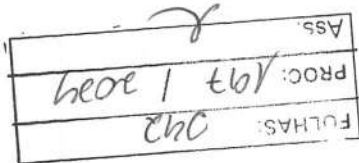 FOLHAS: 042
PROC: 197 / 2024
Ass.